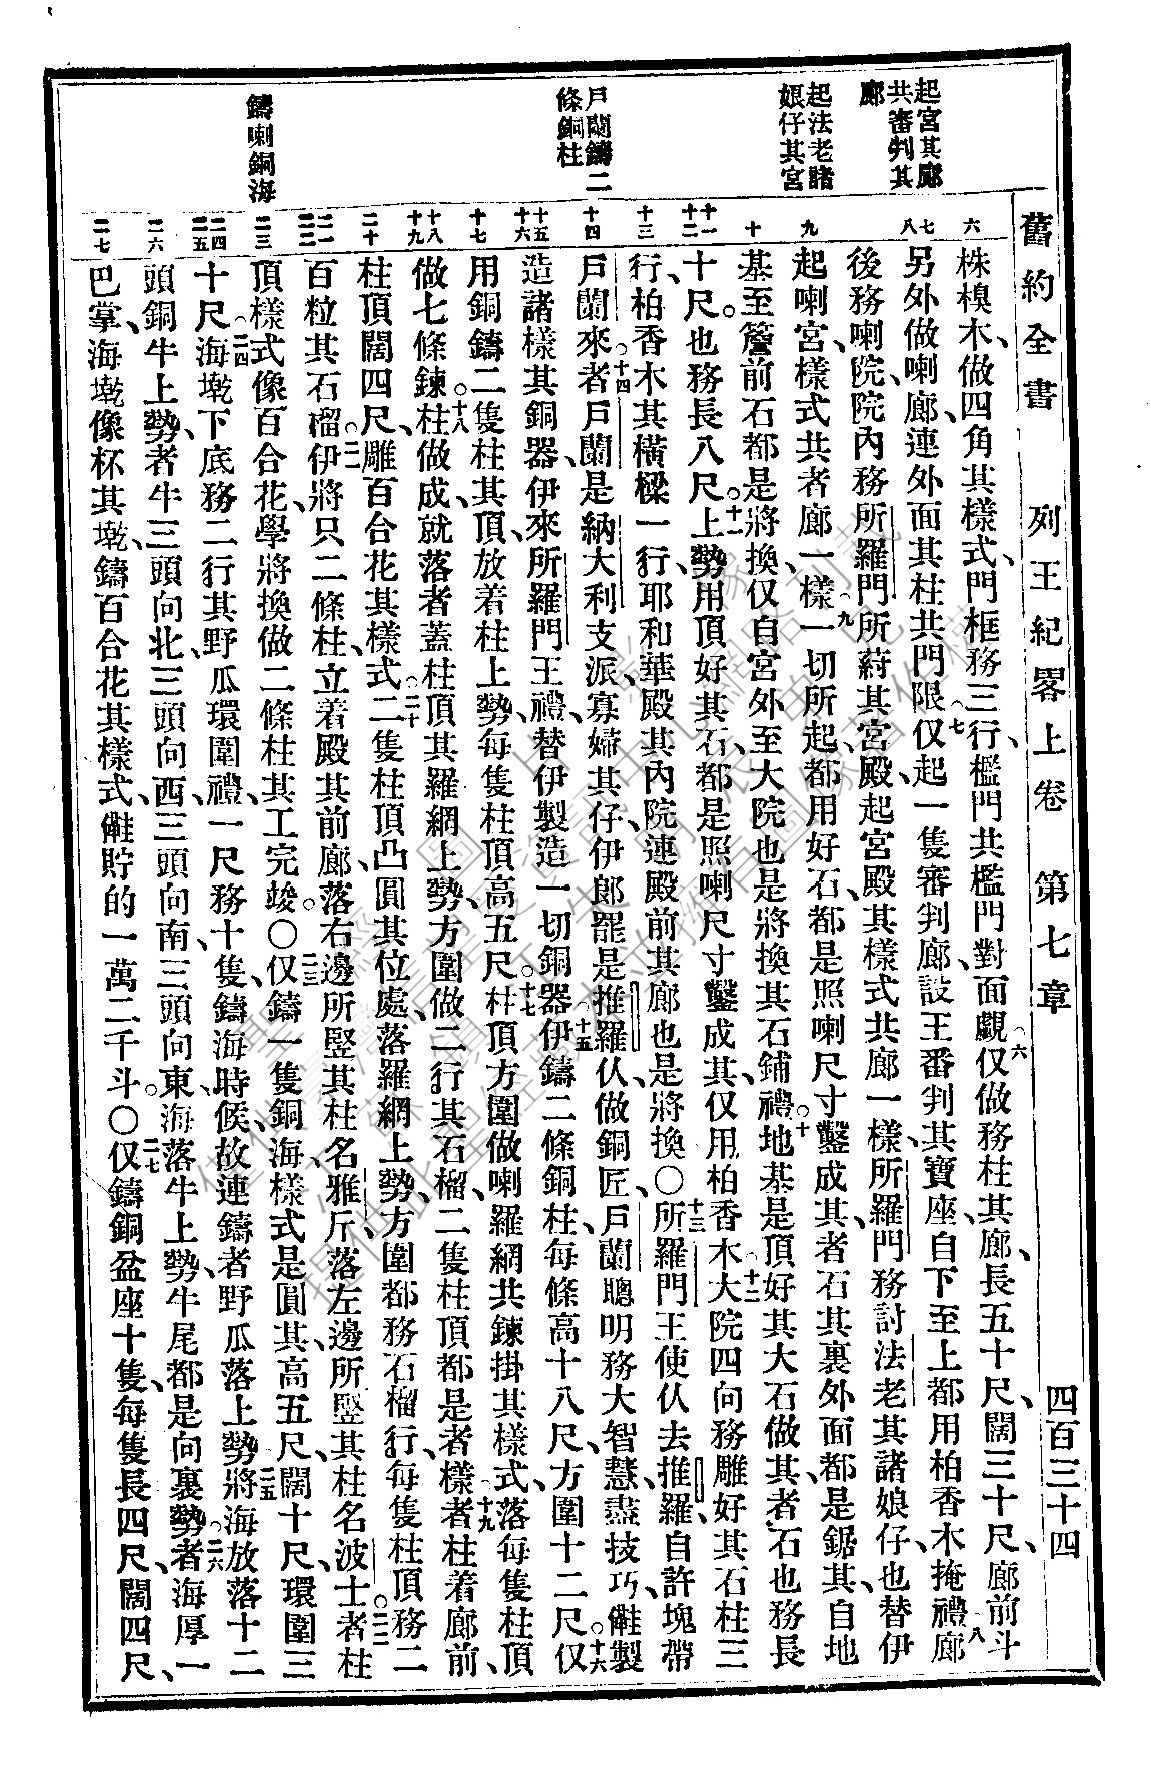 舊約全書　列王紀畧上卷　第七章　四百三十四
起宮其廊
共審判其
廊
起法老諸
娘仔其宮
戶蘭鑄二
條銅柱
鑄喇銅海
六
七
八
九
十
十一
十二
十三
十四
十五
十六
十七
十八
十九
二十
二一
二二
二三
二四
二五
二六
二七
株模木、做四角其樣式、門框務三行、檻門共檻門對面覷、六僅做務柱其廊、長五十尺、闊三十尺、廊前斗
另外做喇廊、連外面其柱共門限、七仅起一隻審判廊、設王審判其寶座、自下至上都用柏香木掩禮、八廊
後務喇院、院內務所羅門所蒔其宮殿、起宮殿其樣式共廊一樣、所羅門務討法老其諸娘仔、也替伊
起喇宮、樣式共者廊一樣、九一切所起、都用好石、都是照喇尺寸鑿成其、者石其裏外面都是鋸其、自地
基至簷前石都是將換、仅自宮外至大院也是將換其石鋪禮。十地基是頂好其大石做其、者石也務長
十尺。也務長八尺。十一上勢用頂好其石、都是照喇尺寸鑿成其、仅用柏香木、十二大院四向務雕好其石柱三
行、柏香木其橫樑一行、耶和華殿其內院連殿前其廊也是將換〇十三所羅門王使仈去推羅、自許塊帶
戶蘭來。十四者戶蘭是納大利支派寡婦其仔、伊郎罷是推羅仈、做銅匠、戶蘭聰明務大智慧、盡技巧、會製
造諸樣其銅器、伊來所羅門王禮、替伊製造一切銅器。十五伊鑄二條銅柱、每條高十八尺、方圍十二尺。十六仅
用銅鑄二隻柱其頂、放着柱上勢、每隻柱頂高五尺。十七柱頂方圍做喇羅網共鍊掛其樣式、落每隻柱頂
做七條鍊。十八柱做成就、落者蓋柱頂其羅網上勢、方圍做二行其石榴、二隻柱頂都是者樣、十九者柱着廊前、
柱頂闊四尺、雕百合花其樣式。二十二隻柱頂凸圓其位處、落羅網上勢、方圍都務石榴行、每隻柱頂務二
百粒其石榴。二一伊將只二條柱、立着殿其前廊、落右邊所竪其柱名雅斤、落左邊所竪其柱名波士。二二者柱
頂樣式像百合花、學將換做二條柱其工完竣〇二三仅鑄一隻銅海、樣式是圓其、高五尺、闊十尺、環圍三
十尺。二四海墘下底、務二行其野瓜環圍禮、一尺務十隻、鑄海時候、故連鑄者野瓜落上勢、二五將海放落十二
頭銅牛上勢、者牛三頭向北、三頭向西、三頭向南、三頭向東、海落牛上勢、牛尾都是向裏勢。二六者海厚一
巴掌、海墘像杯其墘、鑄百合花其樣式、會貯的一萬二千斗。〇二七仅鑄銅盆座十隻、每隻長四尺、闊四尺、